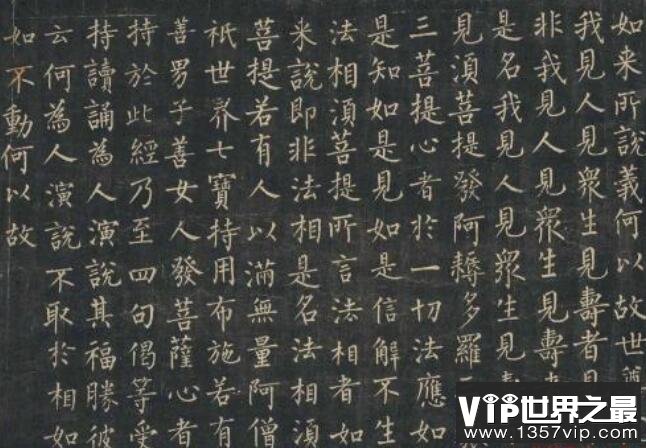 如来所說義何以故世尊
我見人見衆生見壽者見
非我見人見衆生見壽
是名我見人見衆生見
見湏菩提發阿耨多羅三
三菩提心者於一切法應如
是知如是見如是信解不生
法相湏菩提所言法相者如
来說即非法相是名法相湏
菩提若有人以滿無量阿僧
祇世界七寶持用布施若有
善男子善女人發菩薩心者
持於此經乃至四句偈等受
持讀誦為人演說其福勝彼
云何為人演說不取於相如
如不動何以故
VIP世界之最
www.1357vip.com